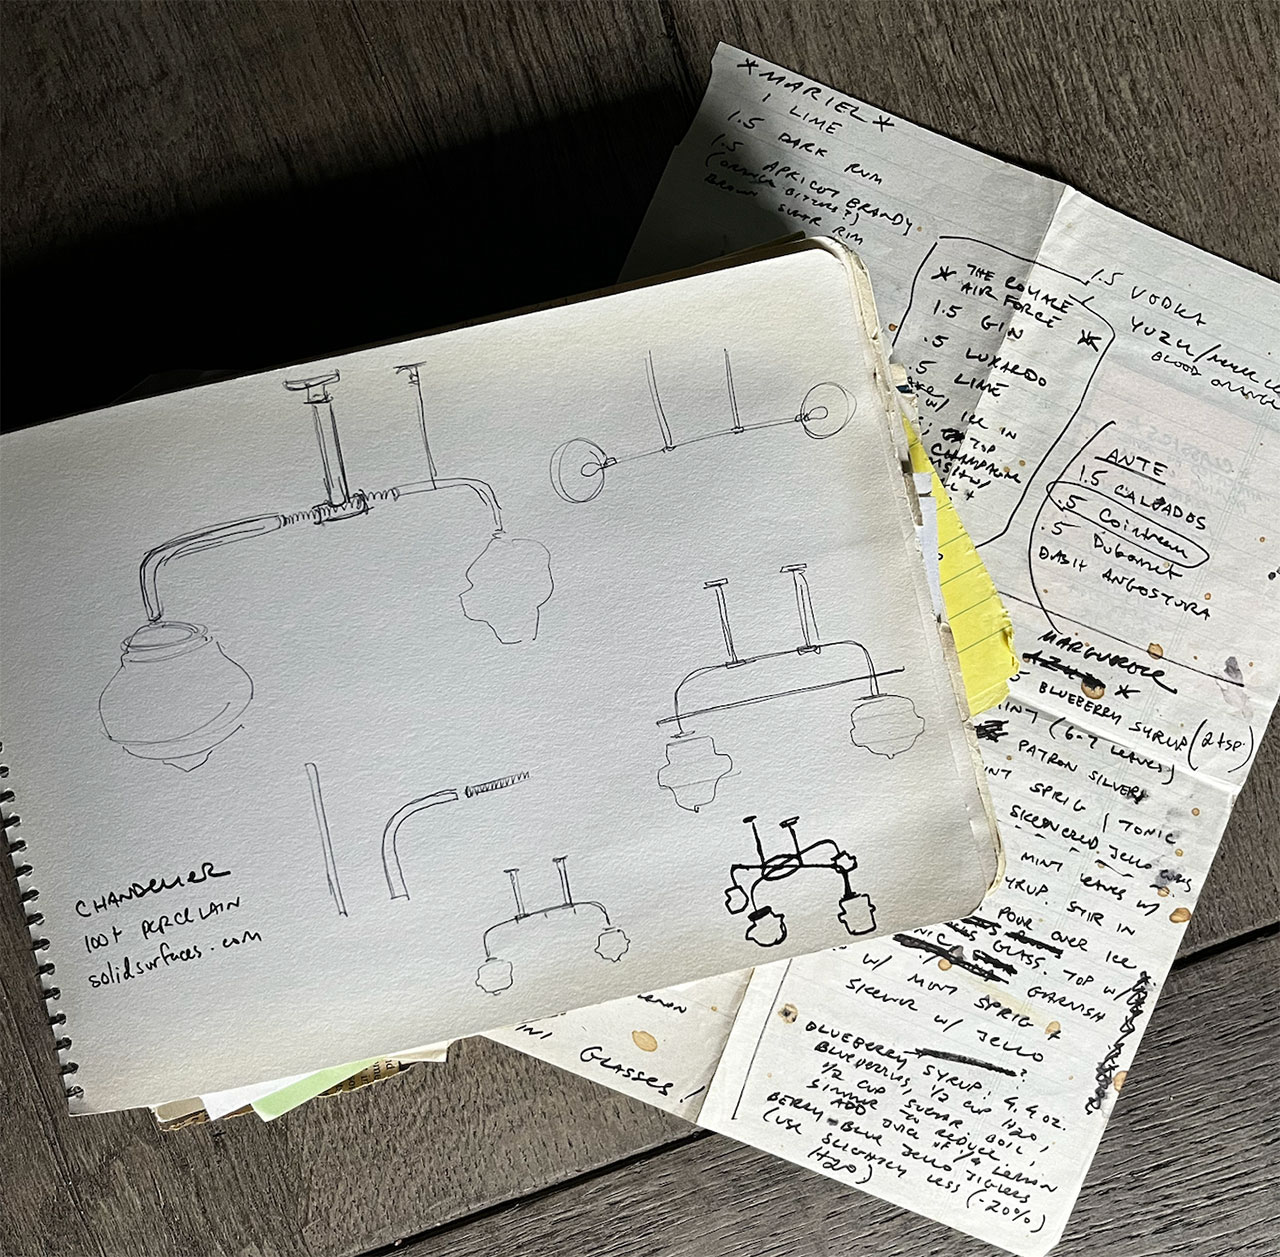 *MARIEL*
1 LIME
1.5 DARK RUM
1.5 APRICOT BRANDY
(ORANGE BITTERS?)
BROWN SUGAR RIM
THE
* AIR FORCE *
1.5 GIN
.5 LUXARDO
.5 LIME
W/ ICE IN
TOP
CHAMPAGNE
1.5 VODKA
YUZU/
BLOOD ORANGE
ANTE
1.5 CALVADOS
.5 Cointreau
.5 Dubonnet
DASH ANGOSTURA
*
BLUEBERRY SYRUP (2 tsp.)
(6-7 LEAVES)
PATRON SILVER
SPRIG | TONIC
SKEWERED JELLO
MINT LEAVES W/
SYRUP. STIR IN
POUR OVER ICE
GLASS. TOP W/
GARNISH
W/ MINT SPRIG +
SKEWER W/ JELLO
BLUEBERRY SYRUP: 4.4 OZ.
BLUEBERRIES, 1/2 CUP H2O,
1/2 CUP SUGAR. BOIL,
SIMMER TO REDUCE.
ADD JUICE OF 1/4 LEMON
BERRY BLUE JELLO JIGGLERS
(USE SLIGHTLY LESS (-20%)
H2O)
GLASSES!
CHANDELIER
100+ PORCELAIN
solidsurfaces.com